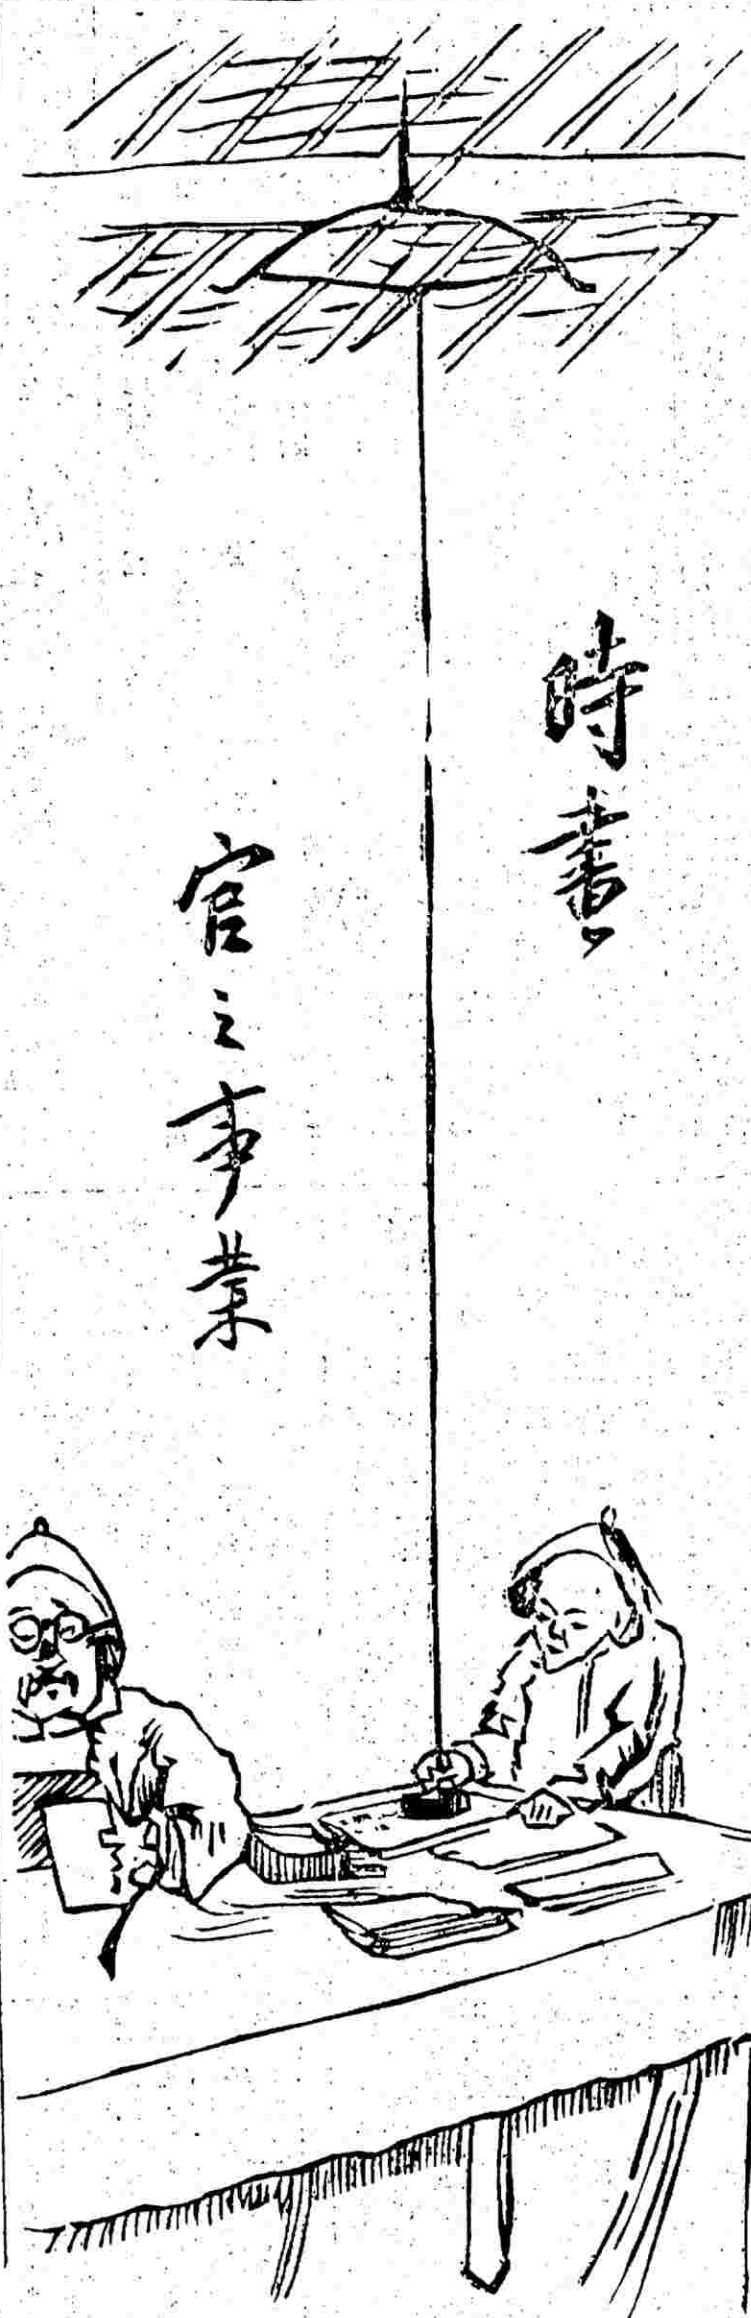 時畫
官之事業